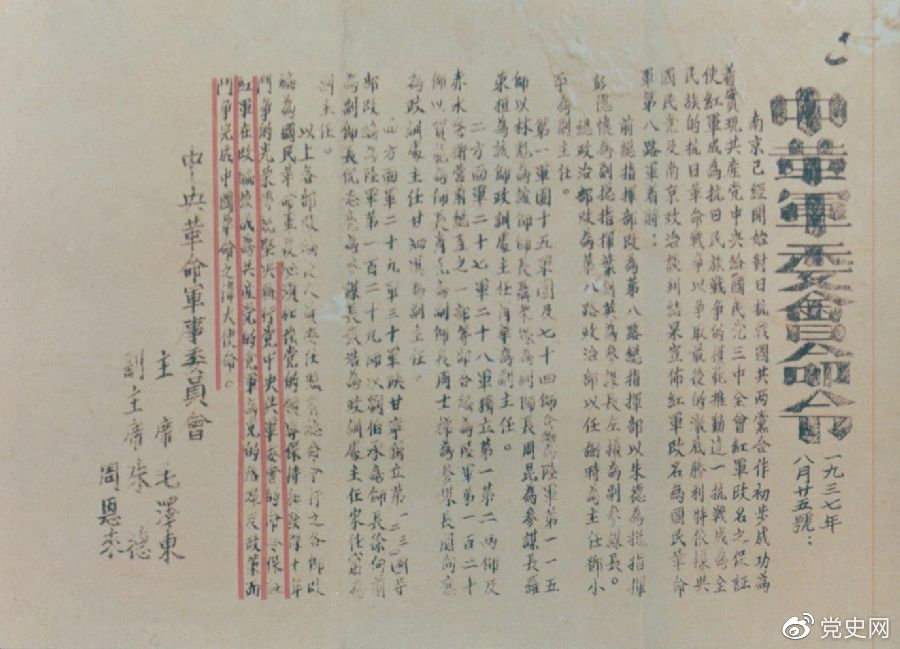 中革軍委會命令
一九三七年
八月廿五號：
南京已經開始對日抗戰國共兩黨合作初步成功為
着實現共產党中央給國民党三中全會紅軍改名之保証
使紅軍成為抗日民族戰争的模範推動這一抗戰成為全
民族的抗日革命戰争以争取最後的澈底勝利特依據共
國民党及南京政治談判結果宣佈紅軍改名為國民革命
軍第八路軍着將：
前總指揮部改為第八路總指揮部以朱德為總指揮
彭德懷為副總指揮葉劍英為參謀長左權為副參謀長。
總政治部改為第八路政治部以任弼時為主任鄧小
平為副主任。
第一軍團十五軍團及七十四師合編為陸軍第一一五
師以林彪為該師師長聶榮臻為副師長周昆為參謀長羅
榮桓為該師政訓處主任蕭華為副主任。
二方面軍二十七軍二十八軍獨立第一第二兩師及
赤水警衛營前總直之一部等部合編為陸軍第一百二十
師以賀龍為師長蕭克為副師長周士第為參謀長關向應
為政訓處主任甘泗淇為副主任。
四方面軍二十九軍三十軍陝甘寧獨立第一二三四等
部改編為陸軍第一百二十九師以劉伯承為師長徐向前
為副師長倪志亮為參謀長張浩為政訓處主任宋任窮為
副主任。
以上各部改編後人員委任照前總命令行之各部改
編為國民革命軍後必須加强党的領導保持和發揮十年
鬥争的光榮傳統堅決執行党中央與軍委會的命令保証
紅軍在改編後成為共產党的党軍為党的路線及政策而
鬥争完成中國革命之偉大使命。
中央革命軍事委員會
主席毛澤東
副主席朱德
周恩來
党史网